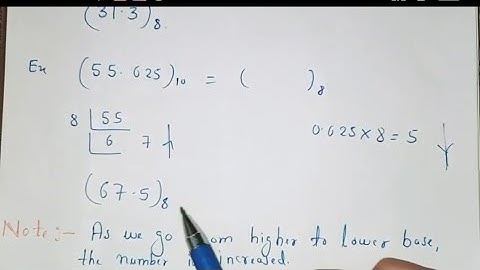 (31.3)8.
Ex (55.625)10 = ( )8
8 55
6 7
0.625 × 8 = 5
(67.5)8
Note:- As we go from higher to lower base,
the number is increased.